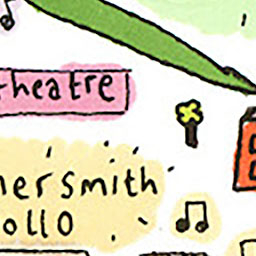 theatre
nersmith
ollo